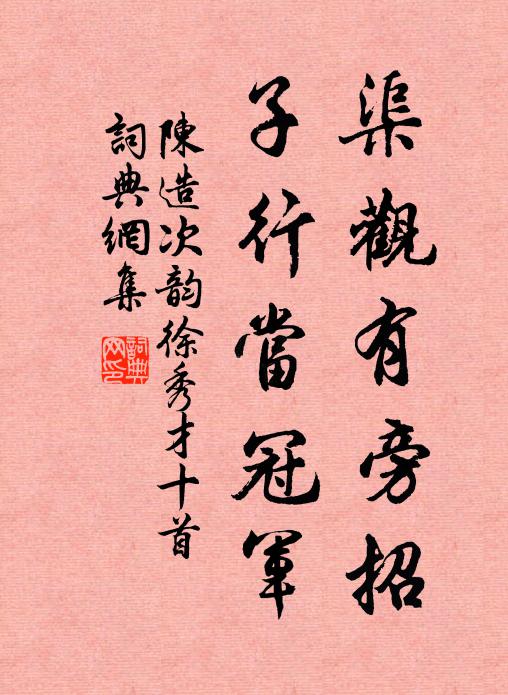 渠觀有旁招
子行當冠軍
陳造次韵徐秀才十首
詞典網集
詞典网印